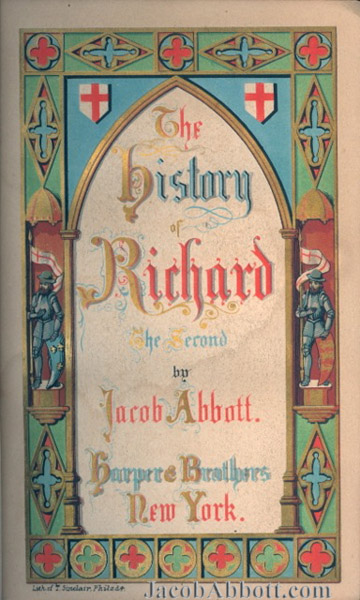 The
History
of
Richard
the Second
by
Jacob Abbott.
Harper & Brothers
New York.
Lith. of T. Sinclair, Philada.
JacobAbbott.com